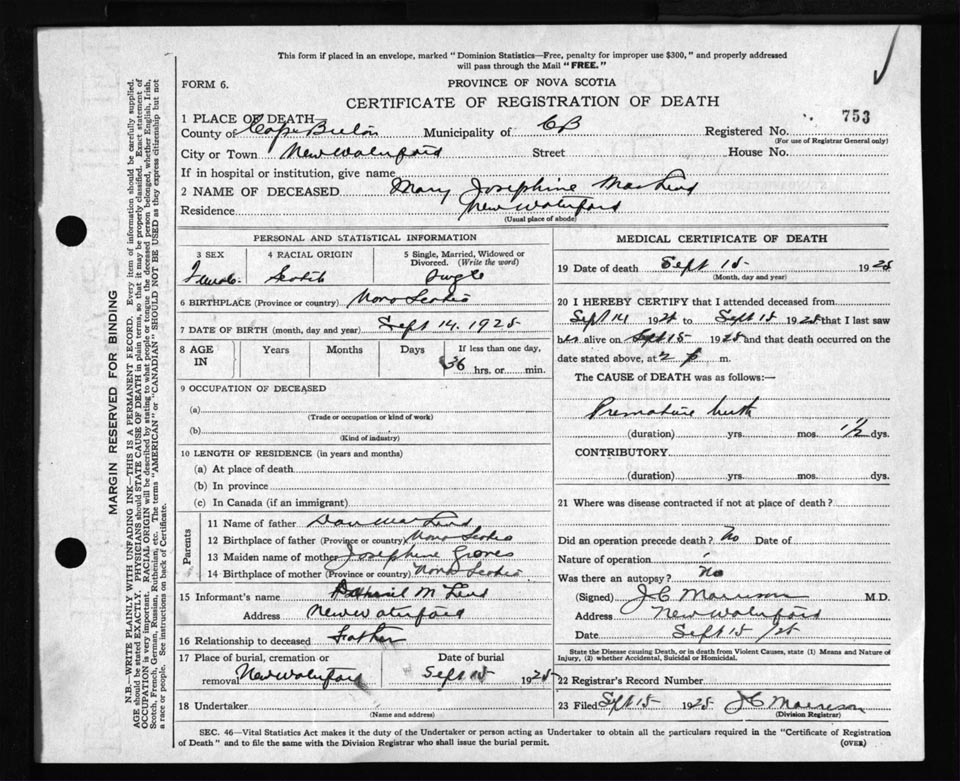 This form if placed in an envelope, marked "Dominion Statistics—Free, penalty for improper use $300," and properly addressed
will pass through the Mail "FREE."
FORM 6.
PROVINCE OF NOVA SCOTIA
CERTIFICATE OF REGISTRATION OF DEATH
1 PLACE OF DEATH—
County of Cape Breton Municipality of CB Registered No. 753
(For use of Registrar General only)
City or Town New Waterford Street House No.
If in hospital or institution, give name
2 NAME OF DECEASED Mary Josephine
Residence New Waterford
(Usual place of abode)
PERSONAL AND STATISTICAL INFORMATION
3 SEX 4 RACIAL ORIGIN 5 Single, Married, Widowed or Divorced. (Write the word)
Female Scotch Single
6 BIRTHPLACE (Province or country) Nova Scotia
7 DATE OF BIRTH (month, day and year) Sept 14. 1928
8 AGE IN Years Months Days If less than one day,
36 hrs. or min.
9 OCCUPATION OF DECEASED
(a)
(Trade or occupation or kind of work)
(b)
(Kind of industry)
10 LENGTH OF RESIDENCE (in years and months)
(a) At place of death
(b) In province
(c) In Canada (if an immigrant)
Parents
11 Name of father Dan
12 Birthplace of father (Province or country) Nova Scotia
13 Maiden name of mother Josephine Groves
14 Birthplace of mother (Province or country) Nova Scotia
15 Informant's name
Address New Waterford
16 Relationship to deceased Father
17 Place of burial, cremation or Date of burial
removal New Waterford Sept 15 1928
18 Undertaker
(Name and address)
MEDICAL CERTIFICATE OF DEATH
19 Date of death Sept 15 1928
(Month, day and year)
20 I HEREBY CERTIFY that I attended deceased from
Sept 14 1928 to Sept 15 1928 that I last saw
her alive on Sept 15 1928 and that death occurred on the
date stated above, at 2 p m.
The CAUSE of DEATH was as follows:—
Premature birth
(duration) yrs. mos. 1/2 dys.
CONTRIBUTORY
(duration) yrs. mos. dys.
21 Where was disease contracted if not at place of death?
Did an operation precede death? No Date of
Nature of operation
Was there an autopsy? No
(Signed) J C Morrison M.D.
Address New Waterford
Date Sept 15 /28
State the Disease causing Death, or in death from Violent Causes, state (1) Means and Nature of
Injury, (2) whether Accidental, Suicidal or Homicidal.
22 Registrar's Record Number
23 Filed Sept 15 1928 J C Morrison
(Division Registrar)
SEC. 46—Vital Statistics Act makes it the duty of the Undertaker or person acting as Undertaker to obtain all the particulars required in the "Certificate of Registration
of Death" and to file the same with the Division Registrar who shall issue the burial permit. (OVER)
MARGIN RESERVED FOR BINDING
N.B.—WRITE PLAINLY WITH UNFADING INK—THIS IS A PERMANENT RECORD. Every item of information should be carefully supplied.
AGE should be stated EXACTLY. PHYSICIANS should STATE CAUSE OF DEATH in plain terms, so that it may be properly classified. Exact statement of
OCCUPATION is very important. RACIAL ORIGIN will be described by stating to what people or tongue the deceased person belonged, whether English, Irish,
Scotch, French, German, Russian, Ruthenian, etc. The terms "AMERICAN" or "CANADIAN" SHOULD NOT BE USED as they express citizenship but not
a race or people. See instructions on back of Certificate.